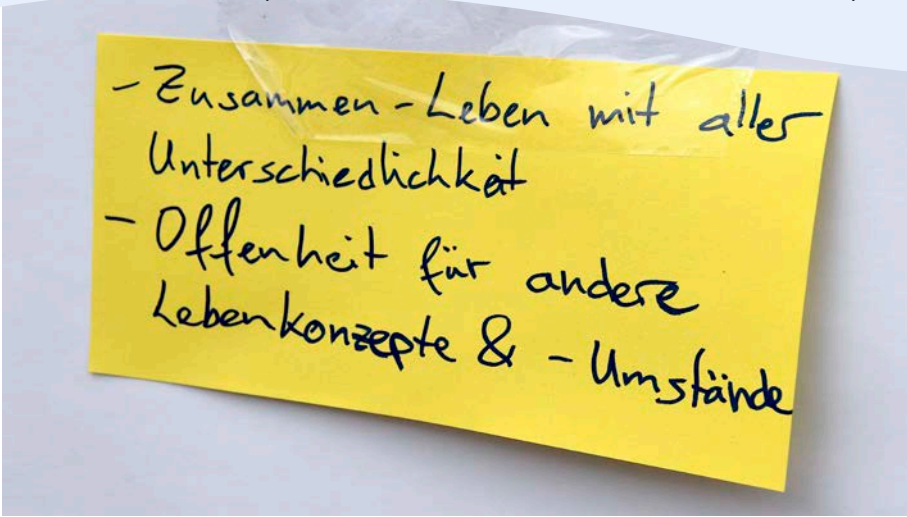 - Zusammen - Leben mit aller
Unterschiedlichkeit
- Offenheit für andere
Lebenkonzepte & - Umstände